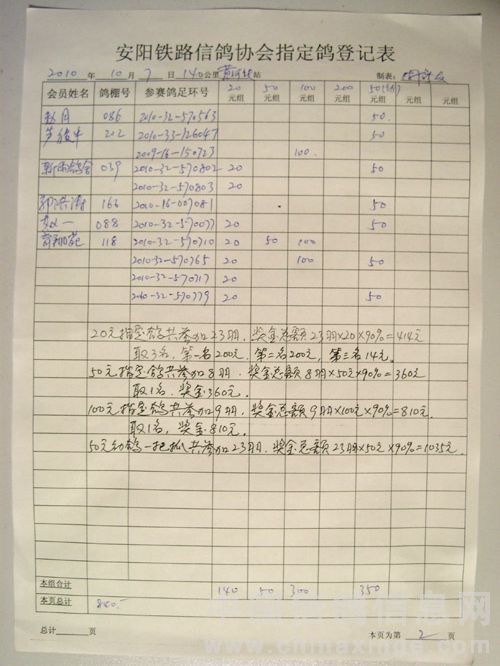 安阳铁路信鸽协会指定鸽登记表
2010 年 10 月 7 日 140 公里 站 制表:
会员姓名 鸽棚号 参赛鸽足环号 20元组 50元组 100元组 200元组 50 元组 元组
赵月 086 2010-32-570563 50
222 2010-33-126047 50
2009-16-150723 100
039 2010-32-570802 20 50
2010-32-570803 20
郭洪涛 166 2010-16-007081 50
赵一 088 2010-32-570077 20 50
118 2010-32-570710 20 50 100
2010-32-570765 20 100 50
2010-32-570717 20
2010-32-570779 20 50
20元指定鸽共参加23羽,奖金总额23羽×20×90%=414元
取3名,第一名200元,第二名200元,第三名14元。
50元指定鸽共参加8羽,奖金总额8羽×50元×90%=360元
取1名,奖金360元。
100元指定鸽共参加9羽,奖金总额9羽×100元×90%=810元
取1名,奖金810元。
50元幼鸽一把抓共参加23羽,奖金总额23羽×50元×90%=1035元
本组合计 140 50 300 350
本页总计 840.-
总计 页 本页为第 2 页